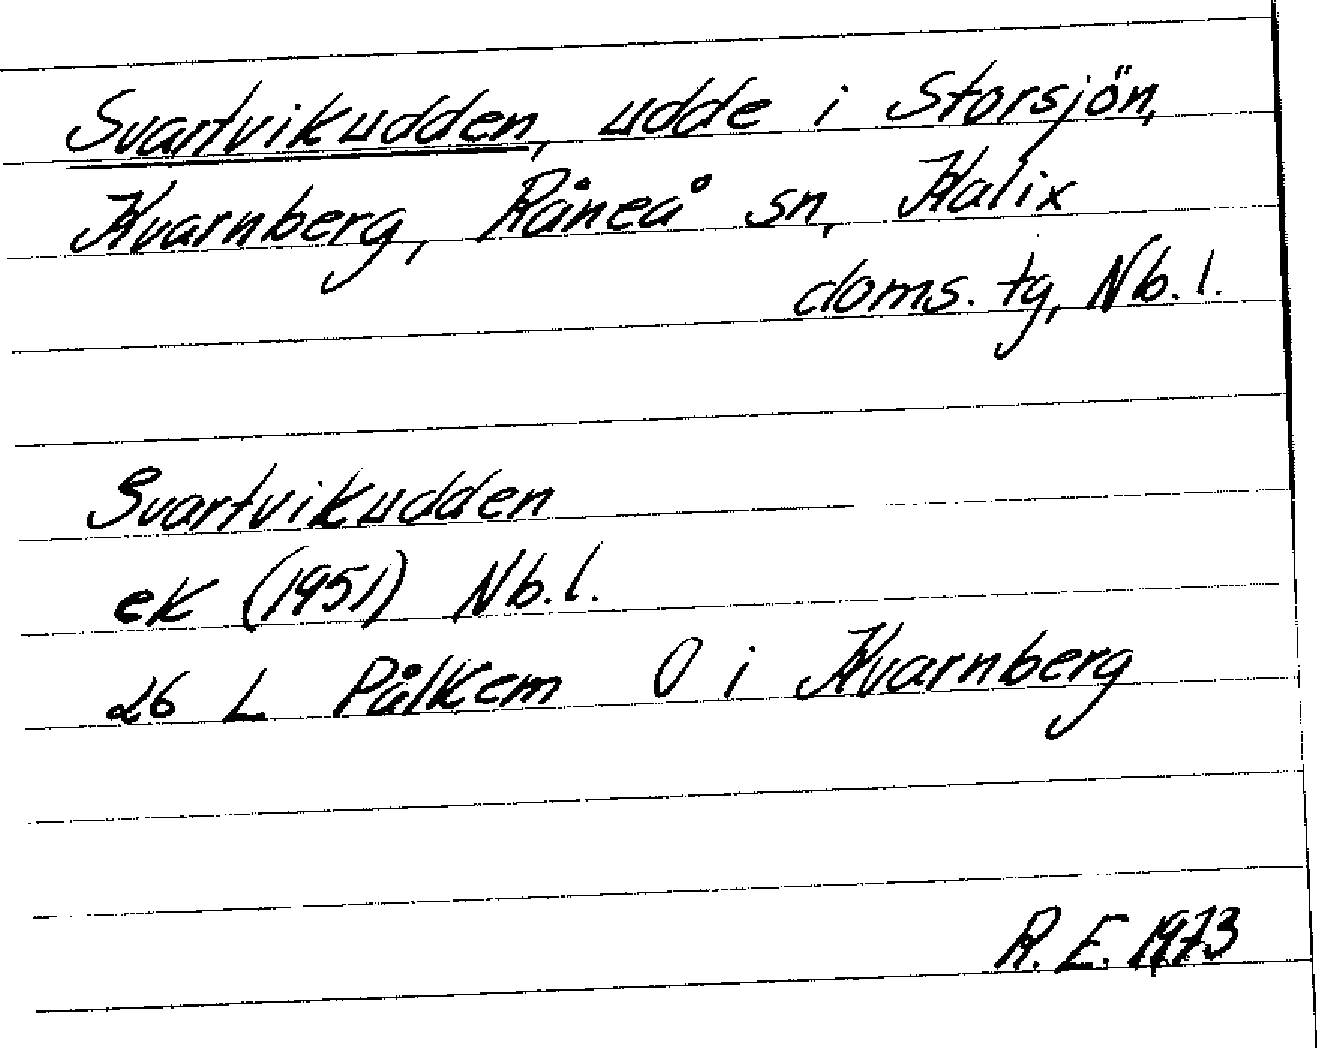 Svartvikudden, udde i Storsjön,
Kvarnberg, Råneå sn, Kalix
doms. tg, Nb. l.
Svartvikudden
ek (1951) Nb. l.
26 L Pålkem O i Kvarnberg
R. E. 1973